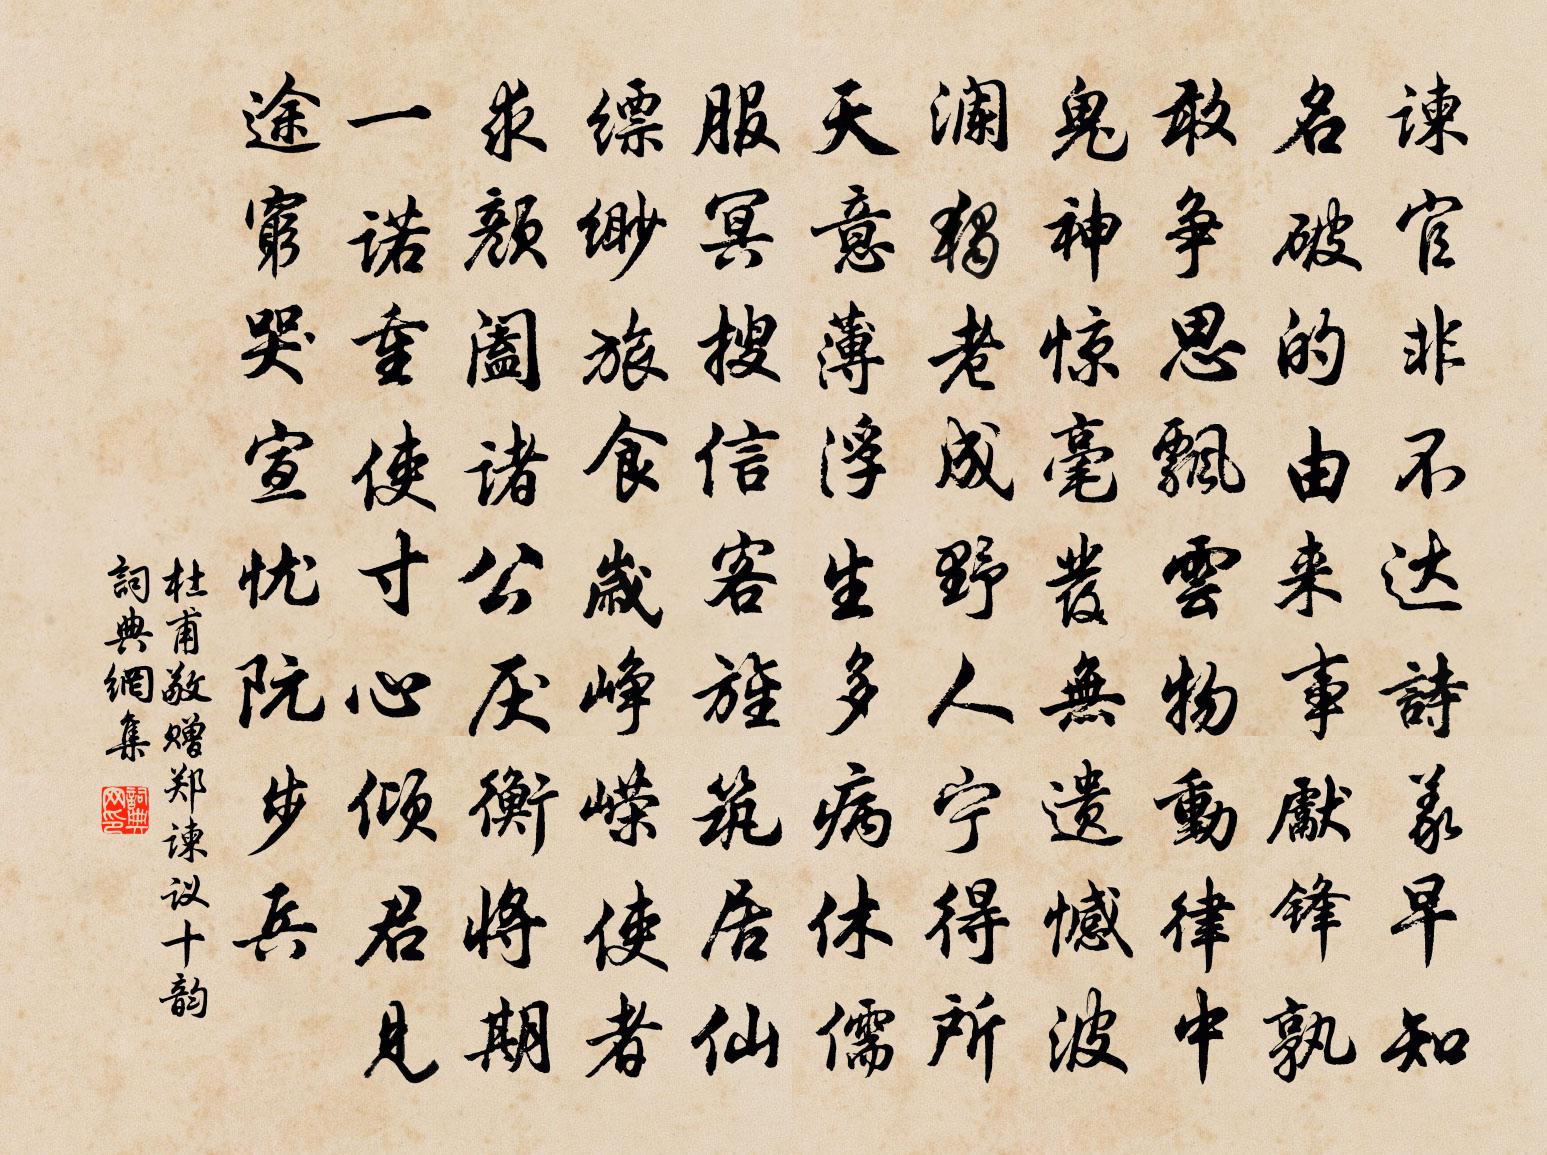 諫官非不达詩義早知
名破的由来事獻锋孰
敢争思飄雲物動律中
鬼神惊毫發無遗憾波
澜独老成野人宁得所
天意薄浮生多病休儒
服冥搜信客旌筑居仙
缥缈旅食歲峥嵘使者
求颜阖诸公厌衡将期
一诺重使寸心倾君見
途窮哭宣忧阮步兵
杜甫敬赠郑諫议十韵
詞典網集
詞典网印